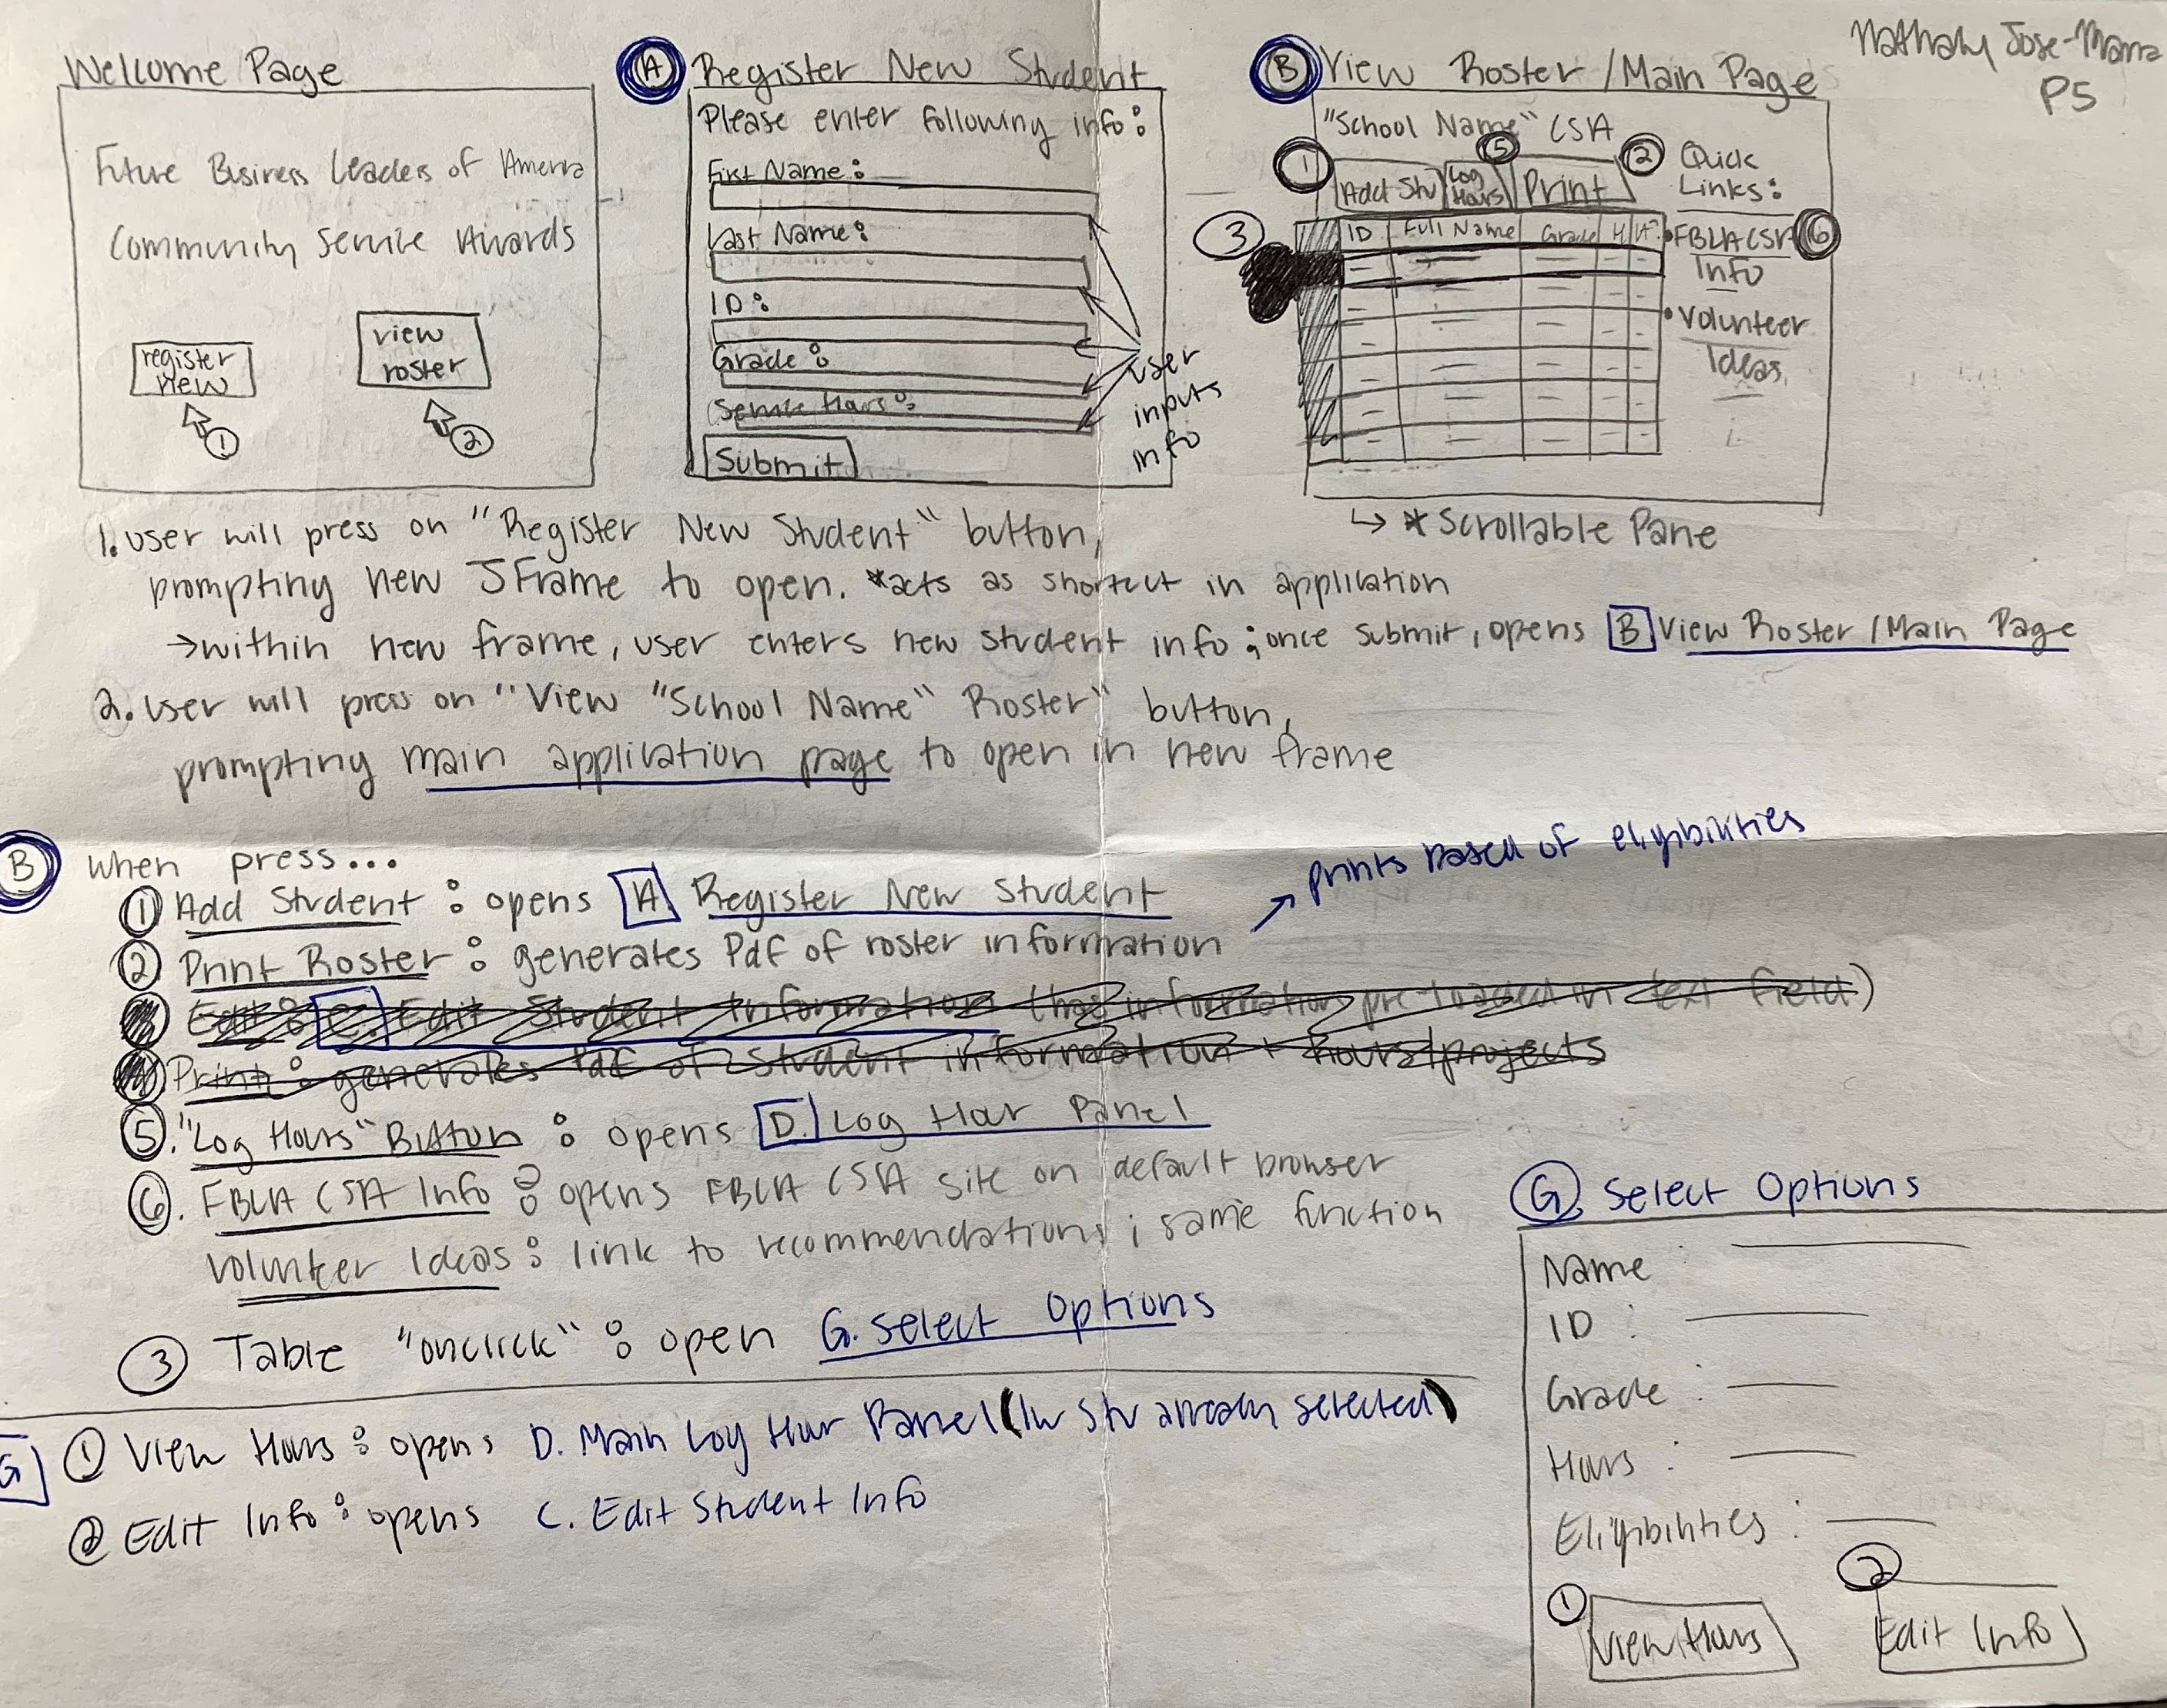 Nathaly Jose-Maria
P5
Welcome Page
Future Business Leaders of America
Community Service Awards
register
new
view
roster
1
2
A Register New Student
Please enter following info:
First Name:
Last Name:
ID:
Grade:
Service Hours:
Submit
user
inputs
info
B View Roster/Main Page
"School Name" CSA
1
5
2
Add Stu
Log
Hours
Print
3
ID Full Name Grade H A?
Quick
Links:
• FBLA CSA
Info
6
• Volunteer
Ideas
↳ *Scrollable Pane
1. User will press on "Register New Student" button,
prompting new JFrame to open. *acts as shortcut in application
→within new frame, user enters new student info; once submit, opens B View Roster/Main Page
2. User will press on "View "School Name" Roster" button,
prompting main application page to open in new frame
B when press...
① Add Student: opens A Register New Student
② Print Roster: generates Pdf of roster information
↗ prints based of eligibilities
Edit: C. Edit Student Information (has information pre-loaded in text field)
Print: generates Pdf of student information + hours/projects
⑤. "Log Hours" Button: opens D. Log Hour Panel
⑥. FBLA CSA Info: opens FBLA CSA site on default browser
Volunteer Ideas: link to recommendations; same function
③ Table "onclick": open G. Select Options
G ① View Hours: opens D. Main Log Hour Panel (w stu already selected)
② Edit Info: opens C. Edit Student Info
G. Select Options
Name:
ID:
Grade:
Hours:
Eligibilities:
①
View Hours
②
Edit Info